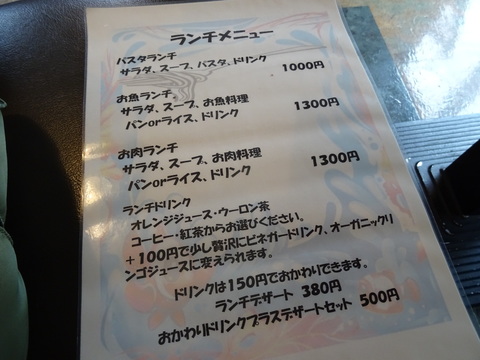 ランチメニュー
パスタランチ
サラダ、スープ、パスタ、ドリンク 1000円
お魚ランチ。
サラダ、スープ、お魚料理 1300円
パンorライス、ドリンク
お肉ランチ
サラダ、スープ、お肉料理 1300円
パンorライス、ドリンク
ランチドリンク
オレンジジュース・ウーロン茶
コーヒー・紅茶からお選びください。
+100円で少し贅沢にビネガードリンク、オーガニックリ
ンゴジュースに変えられます。
ドリンクは150円でおかわりできます。
ランチデザート 380円
おかわりドリンクプラスデザートセット 500円